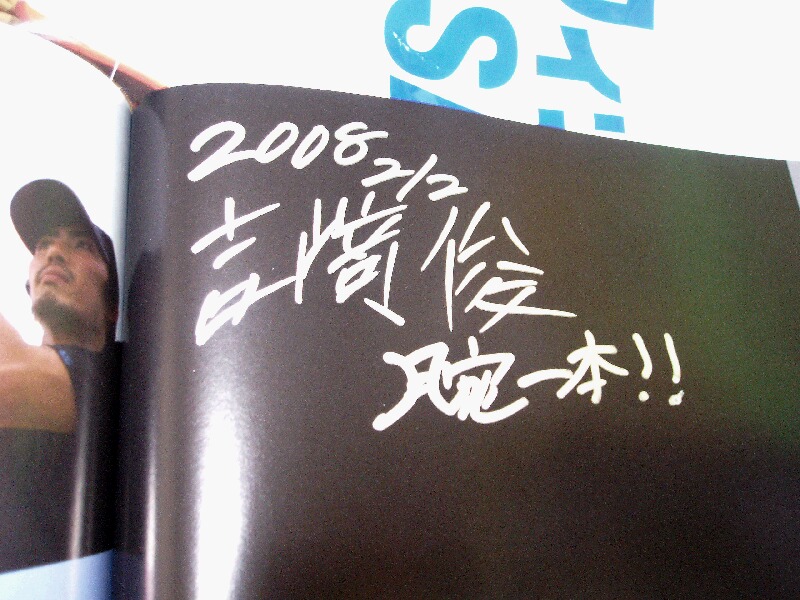 2008 2/2
吉﨑俊
腕一本!!